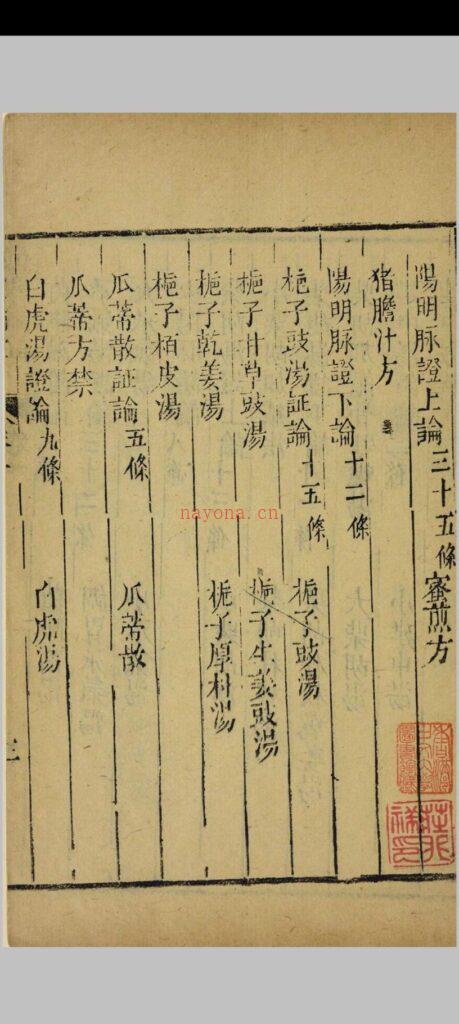 陽明脉證上論三十五條 蜜煎方
猪膽汁方
陽明脉證下論十二條
梔子豉湯証論十五條 梔子豉湯
梔子甘草豉湯 梔子生姜豉湯
梔子乾姜湯 梔子厚朴湯
梔子栢皮湯
瓜蒂散証論五條 瓜蒂散
瓜蒂方禁
白虎湯證論九條 白虎湯
三
nayona.cn